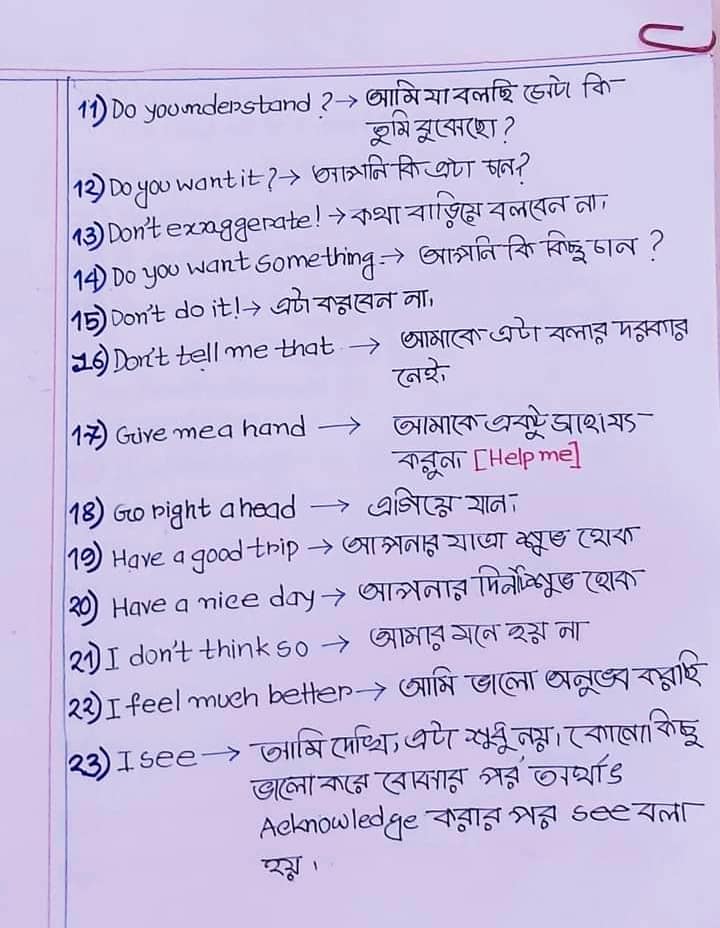 11) Do you understand ? → আমি যা বলছি সেটা কি
তুমি বুঝেছো ?
12) Do you want it ? → আপনি কি এটা চান?
13) Don't exaggerate! → কথা বাড়িয়ে বলবেন না।
14) Do you want something. → আপনি কি কিছু চান ?
15) Don't do it! → এটা করবেন না।
16) Don't tell me that → আমাকে এটা বলার দরকার
নেই।
17) Give me a hand → আমাকে একটু সাহায্য
করুন। [Help me]
18) Go right ahead → এগিয়ে যান।
19) Have a good trip → আপনার যাত্রা শুভ হোক
20) Have a nice day → আপনার দিনটি শুভ হোক
21) I don't think so → আমার মনে হয় না
22) I feel much better → আমি ভালো অনুভব করছি
23) I see → আমি দেখি, এটা শুধু নয়। কোনো কিছু
ভালো করে বোঝার পর অর্থাৎ
Acknowledge করার পর see বলা
হয়।